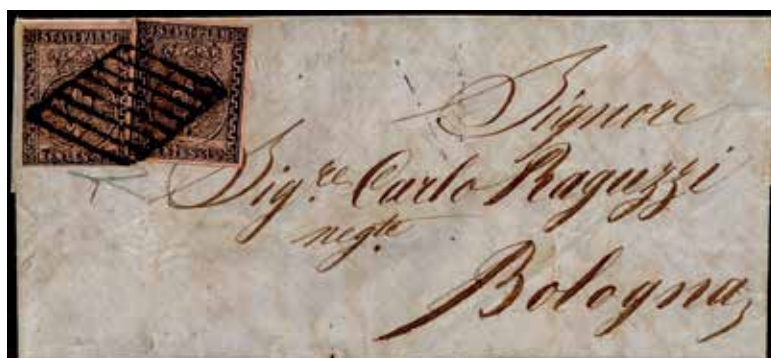 STATI PARM.
STATI PARM.
Signore
Sig.re Carlo Raguzzi
negte
Bologna